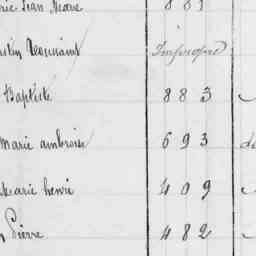 rie Jean Marie 883
Toussaint Impropre
Baptiste 883
Marie ambroise 693
Marie henri 409
Pierre 482